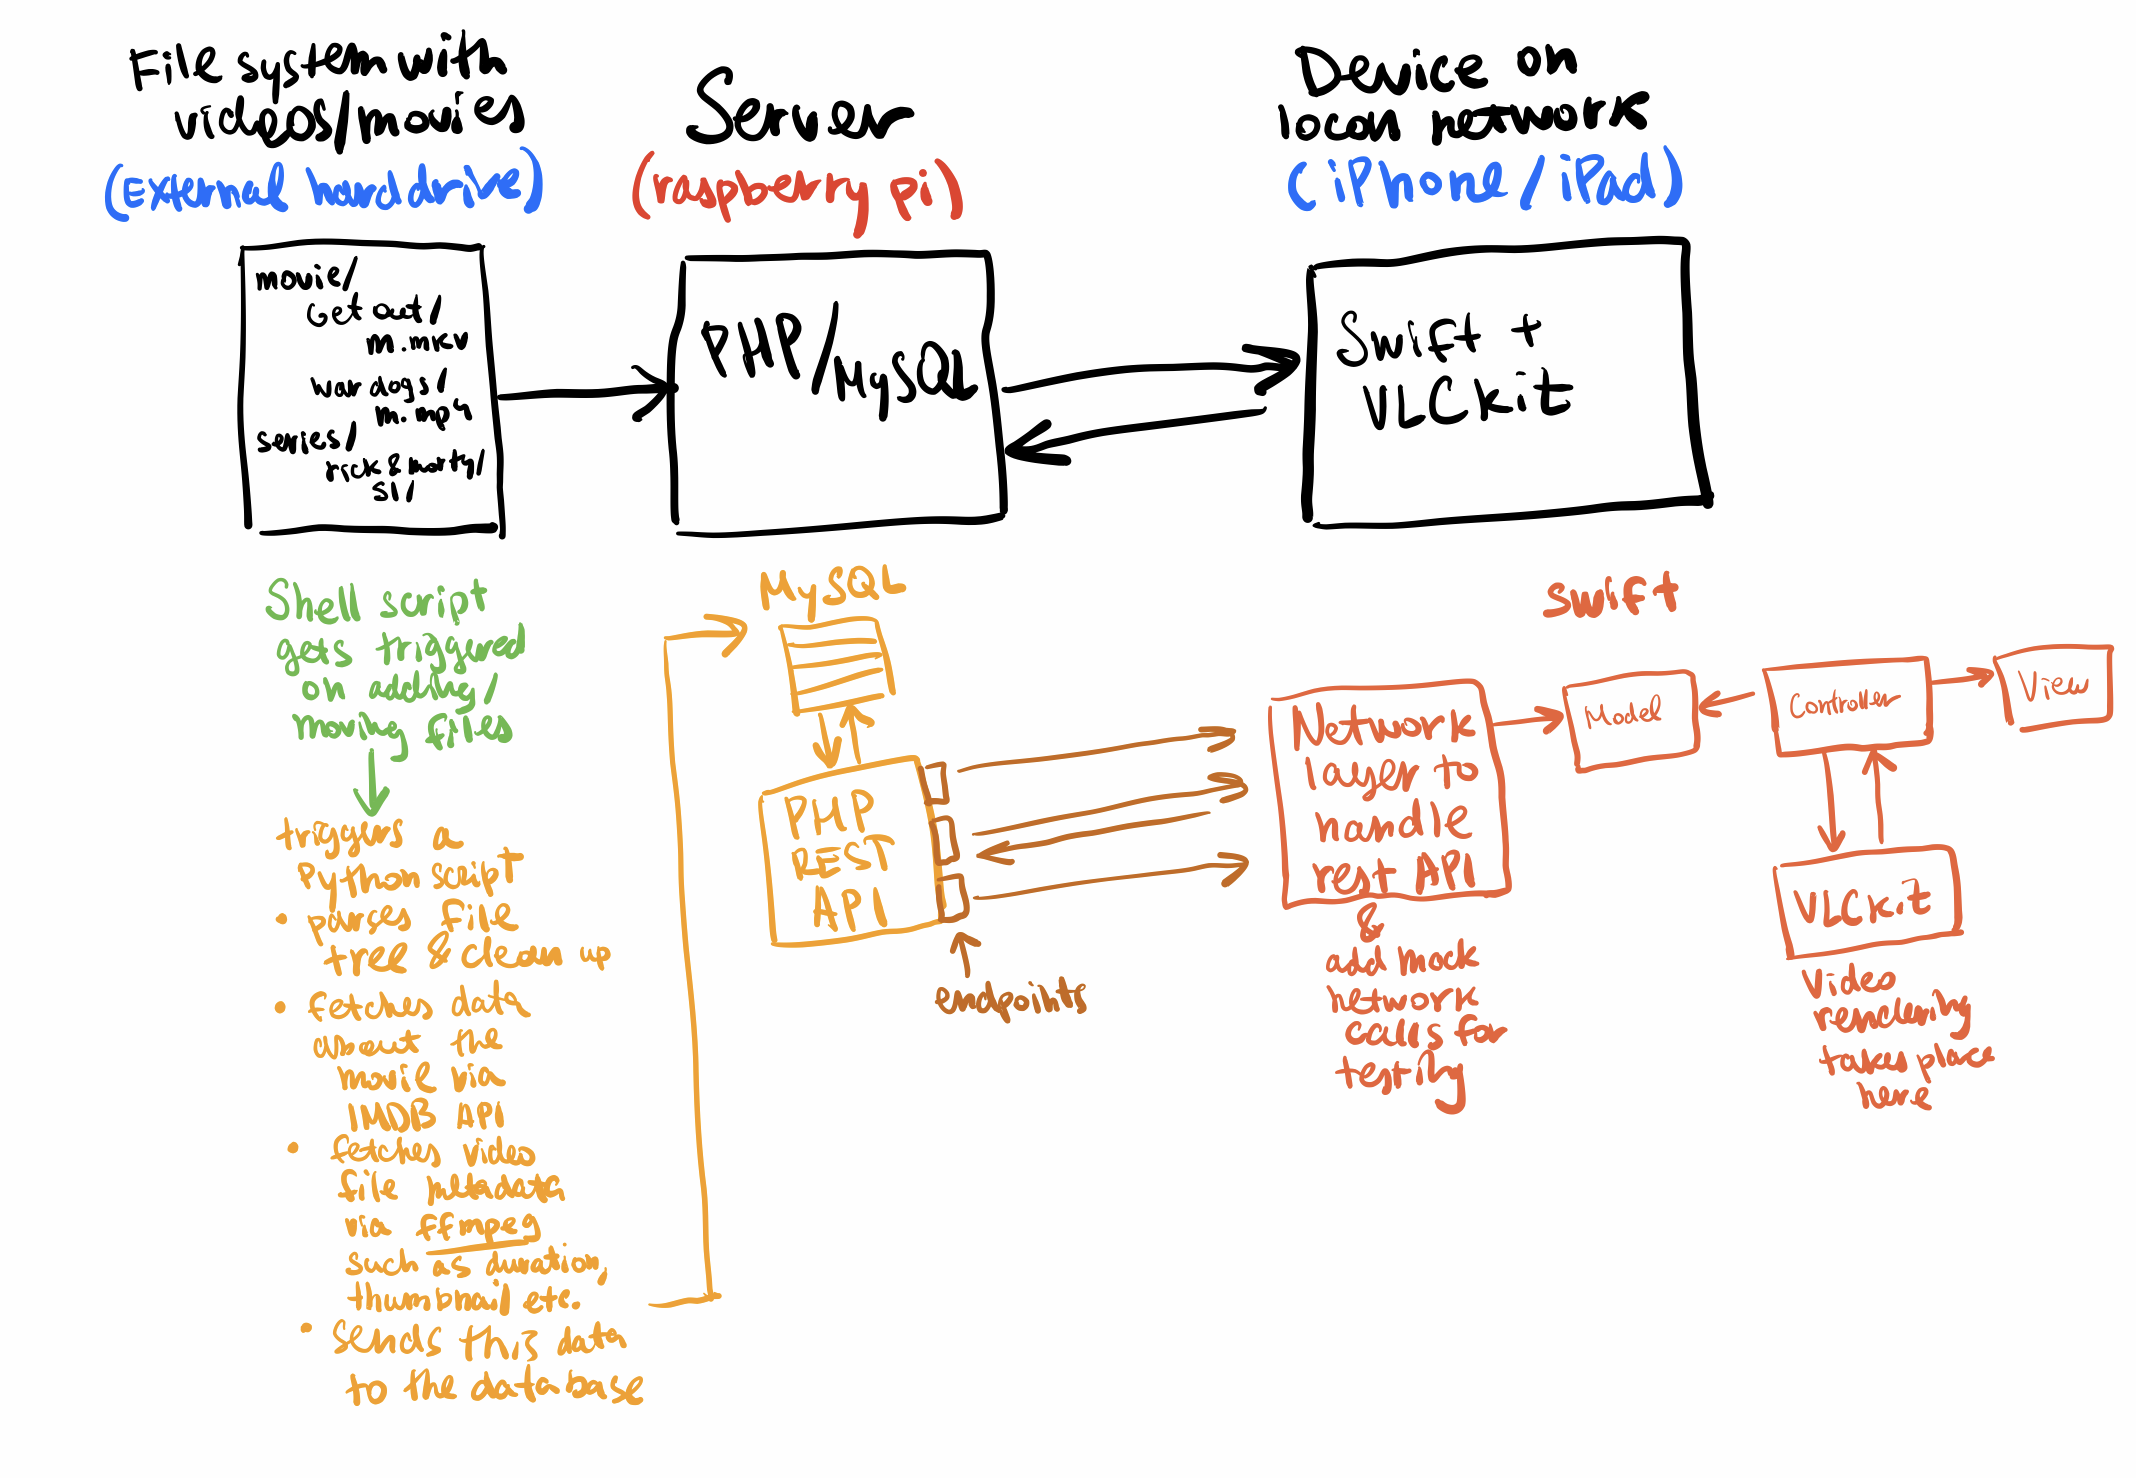 File system with
videos/movies
(External harddrive)
Server
(raspberry pi)
Device on
locan network
(iPhone/iPad)
movie/
Get out/
m.mkv
war dogs/
m.mp4
series/
rick & morty/
S1/
PHP/MySQL
Swift +
VLCkit
Shell script
gets triggered
on adding/
moving files
triggers a
Python script
• parses file
tree & clean up
• fetches data
about the
movie via
IMDB API
• fetches video
file metadata
via ffmpeg
such as duration,
thumbnail etc.
• sends this data
to the database
MySQL
PHP
REST
API
endpoints
Swift
Network
layer to
handle
rest API
&
add mock
network
calls for
testing
Model
Controller
View
VLCkit
Video
rendering
takes place
here